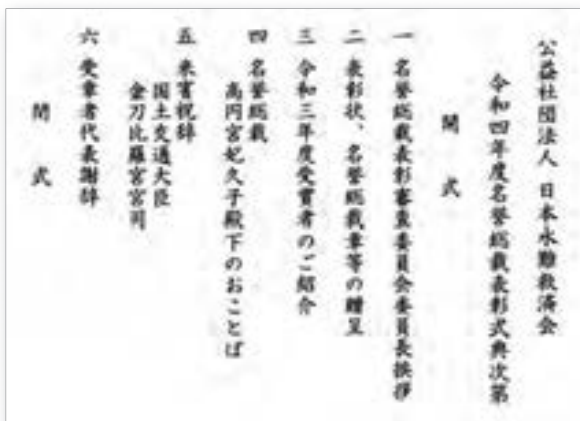 公益社団法人 日本水難救済会
令和四年度名誉総裁表彰式典次第
開 式
一 名誉総裁表彰審査委員会委員長挨拶
二 表彰状、名誉総裁章等の贈呈
三 令和三年度受賞者のご紹介
四 名誉総裁
高円宮妃久子殿下のおことば
五 来賓祝辞
国土交通大臣
金刀比羅宮宮司
六 受章者代表謝辞
閉 式